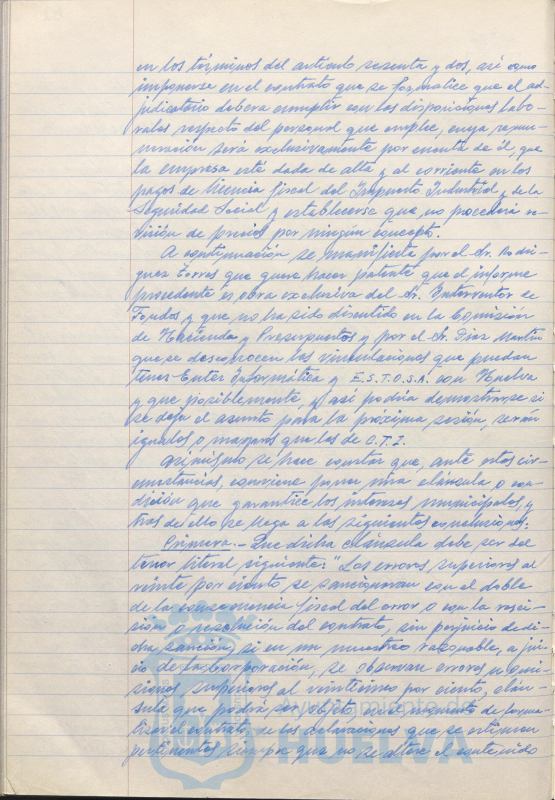 en los términos del artículo sesenta y dos, así como
imponerse en el contrato que se formalice que el ad-
judicatario deberá cumplir con las disposiciones labo-
rales respecto del personal que emplee, cuya remu-
neración será exclusivamente por cuenta de él, que
la empresa esté dada de alta y al corriente en los
pagos de licencia fiscal del Impuesto Industrial y de la
Seguridad Social y establecerse que no procederá re-
visión de precios por ningún concepto.
A continuación se manifiesta por el Sr. Rodrí-
guez Torres que quiere hacer patente que el informe
precedente es obra exclusiva del Sr. Interventor de
Fondos y que no ha sido discutido en la Comisión
de Hacienda y Presupuestos y por el Sr. Díaz Martín
que se desconocen las vinculaciones que puedan
tener Enter Informática y E.S.T.O.S.A. con Huelva
y que posiblemente, y así podría demostrarse si
se deja el asunto para la próxima sesión, serán
iguales o mayores que las de C.T.I.
Asimismo se hace constar que, ante estas cir-
cunstancias, conviene poner una cláusula o con-
dición que garantice los intereses municipales, y
tras de ello se llega a las siguientes conclusiones:
Primera.- Que dicha cláusula debe ser del
tenor literal siguiente: "Los errores superiores al
veinte por ciento, se sancionarán con el doble
de la consecuencia fiscal del error o con la resci-
sión o resolución del contrato, sin perjuicio de di-
cha sanción, si en un muestreo razonable, a jui-
cio de la Corporación, se observan errores u omi-
siones superiores al veinticinco por ciento, cláu-
sula que podrá ser objeto, en el momento de forma-
lizar el contrato, de las aclaraciones que se estimen
pertinentes siempre que no se altere el contenido
HUELVA